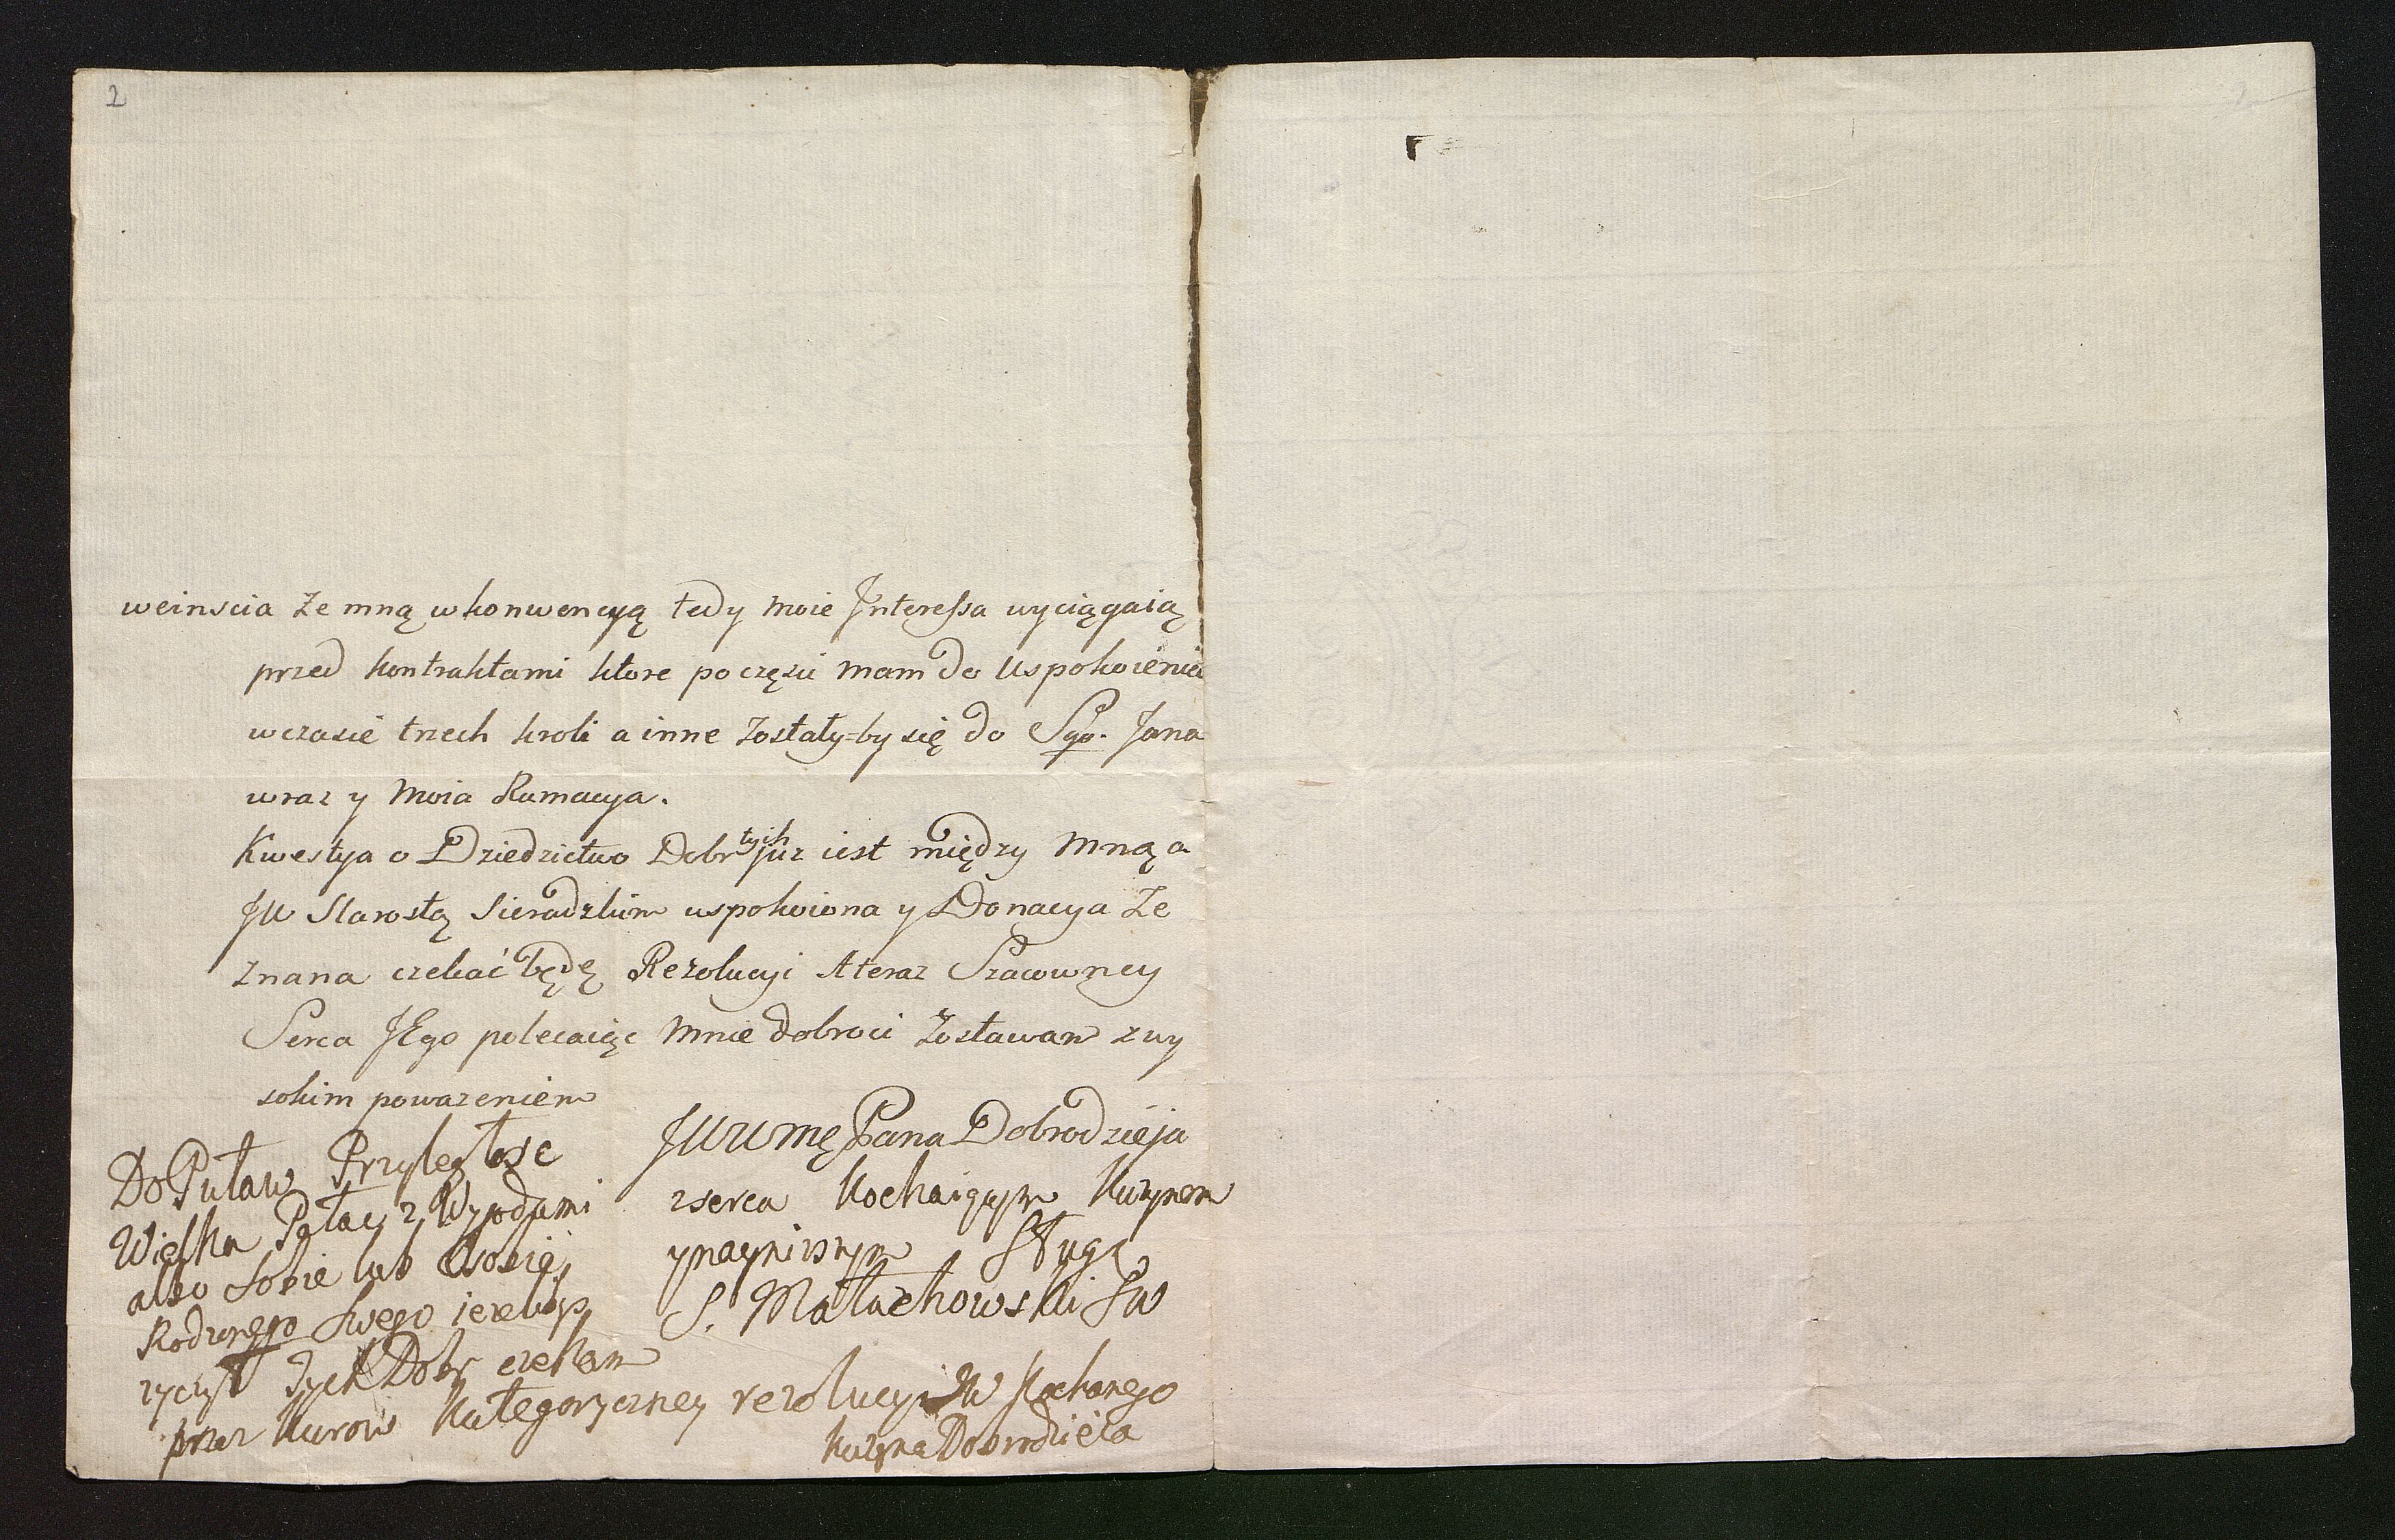 2
weinscia ze mną w konwencyą tedy moie Jnteressa wyciągaią
przed kontraktami ktore po części mam do uspokoienia
w czasie trzech kroli a inne zostały=by się do Sgo. Jana
wraz y moia Rumacya.
Kwestya o Dziedzictwo Dobr tych juz iest między mną a
JW Starostą Sieradzkim uspokoiona y Donacya Ze
znana czekać będę Rezolucyi A teraz Szacowney
Serca JEgo polecaiąc mnie dobroci zostawam z wy
sokim powazeniem
JWWMę Pana Dobrodzieja
z serca Kochaiącym Kuzynem
y naynizszym Sługą
S. Małachowski
Do Puław Przyległosc
Wielka Pałac z Wygodami
albo Sobie lub
Rodzonego Swego iezelibys
zyczył Tych Dobr czekam
przez Kurow Kategoryczney rezolucyi JW Kochanego
Kuzyna Dobrodzieia